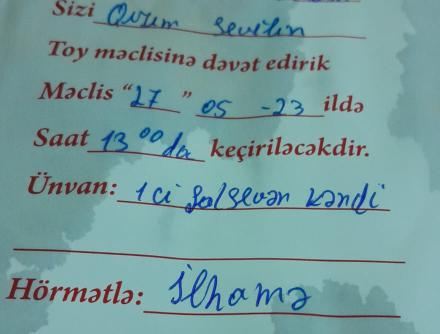 Sizi Qızım Sevilin
Toy məclisinə dəvət edirik
Məclis "27" 05 -23 ildə
Saat 13⁰⁰da keçiriləcəkdir.
Ünvan: 1ci Şal kəndi
Hörmətlə: İlhamə